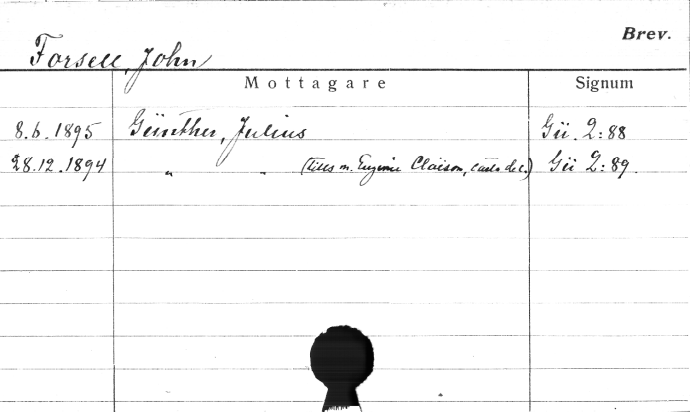 Brev.
Forsell, John
Mottagare Signum
8.6.1895 Günther, Julius Gü. 2:88
28.12.1894 " " (tills m. Eugenie Claëson, carte de c.) Gü 2:89.